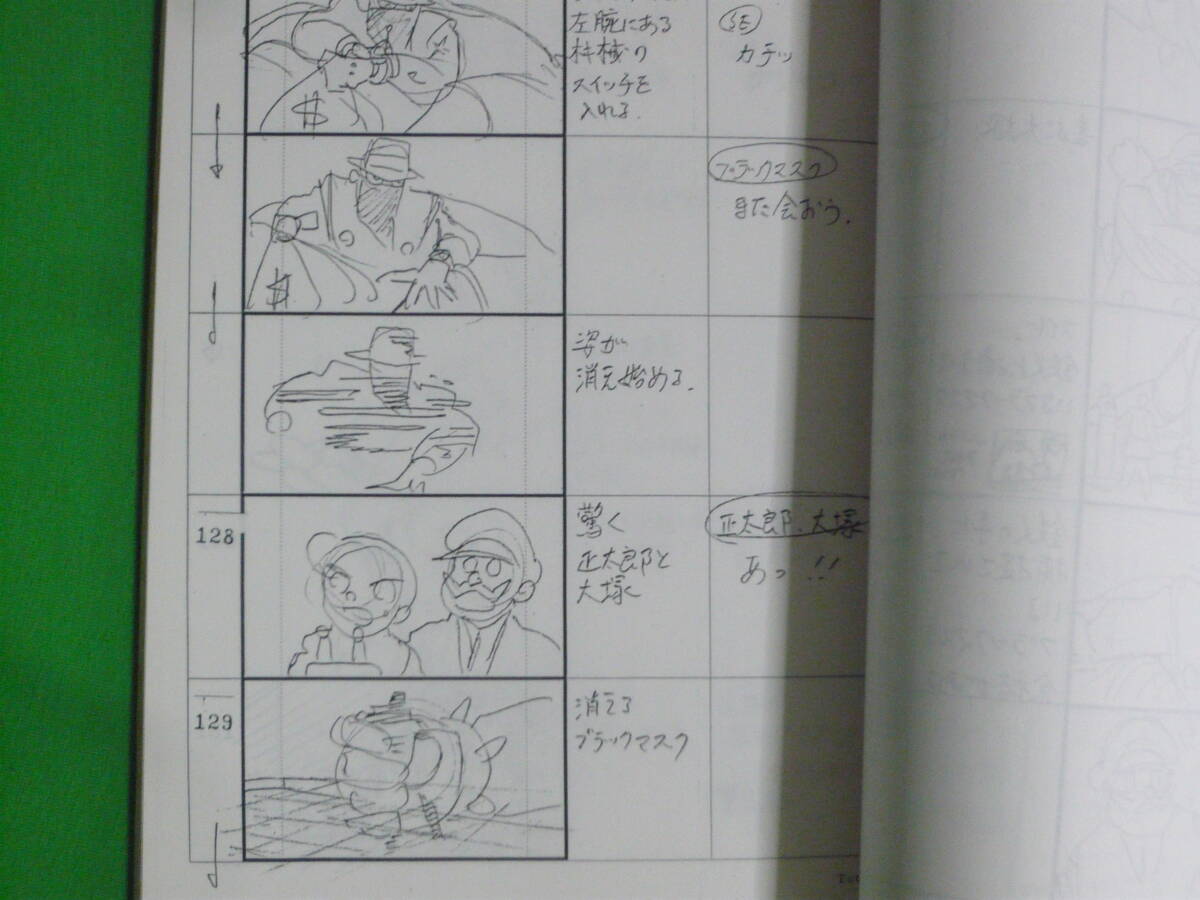 左腕にある
機械の
スイッチを
入れる.
SE
カチッ
$
ブラックマスク
また会おう.
$
姿が
消え始める.
128
驚く
正太郎と
大塚
正太郎、大塚
あっ!!
129
消える
ブラックマスク